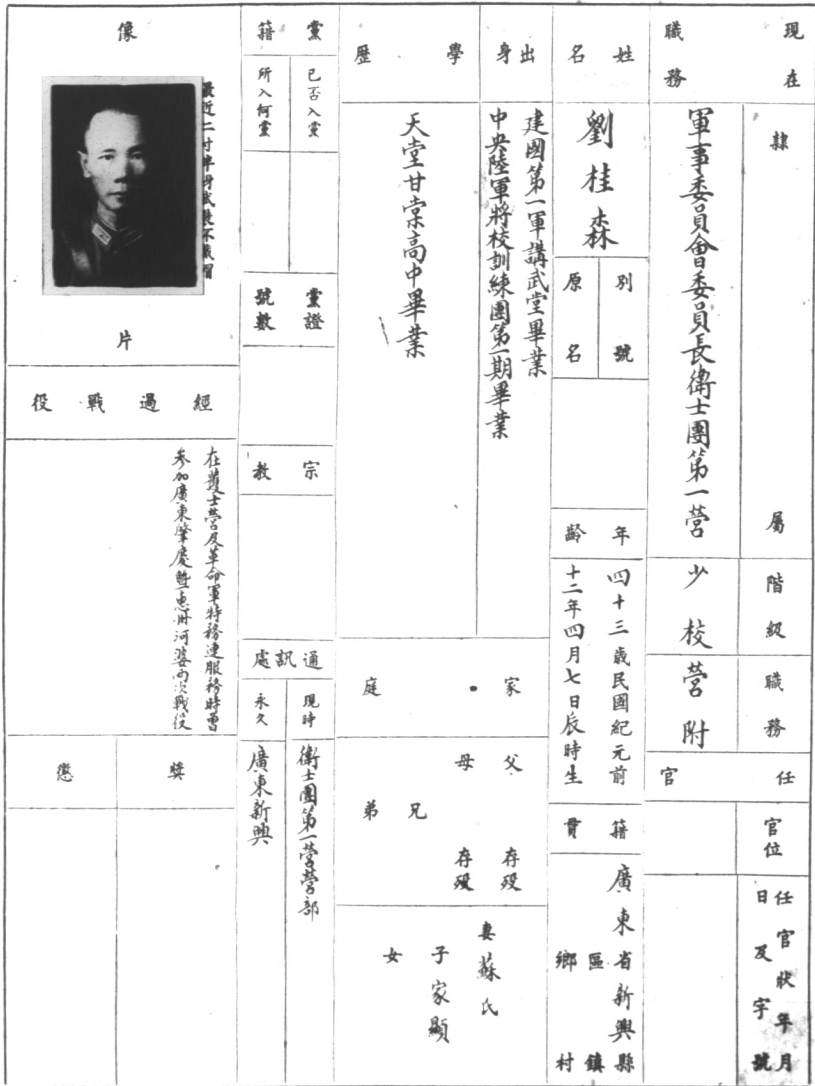 現在職務
隸屬
軍事委員會委員長衛士團第一營
階級
少校
職務
營附
任官
官位
任官狀年月日及字號
姓名
劉桂森
別號
原名
年齡
四十三歲民國紀元前
十二年四月七日辰時生
籍貫
廣東省新興縣
區鎮
鄉村
出身
建國第一軍講武堂畢業
中央陸軍將校訓練團第一期畢業
學歷
天堂甘棠高中畢業
家庭
父 存歿
母 存歿
兄
弟
妻蘇氏
子家顯
女
黨籍
已否入黨
所入何黨
黨證號數
宗教
通訊處
現時
衛士團第一營營部
永久
廣東新興
像片
最近二寸半身武裝不戴帽
經過戰役
在護士營及革命軍特務連服務時曾
參加廣東肇慶暨惠州河婆兩次戰役
獎
懲